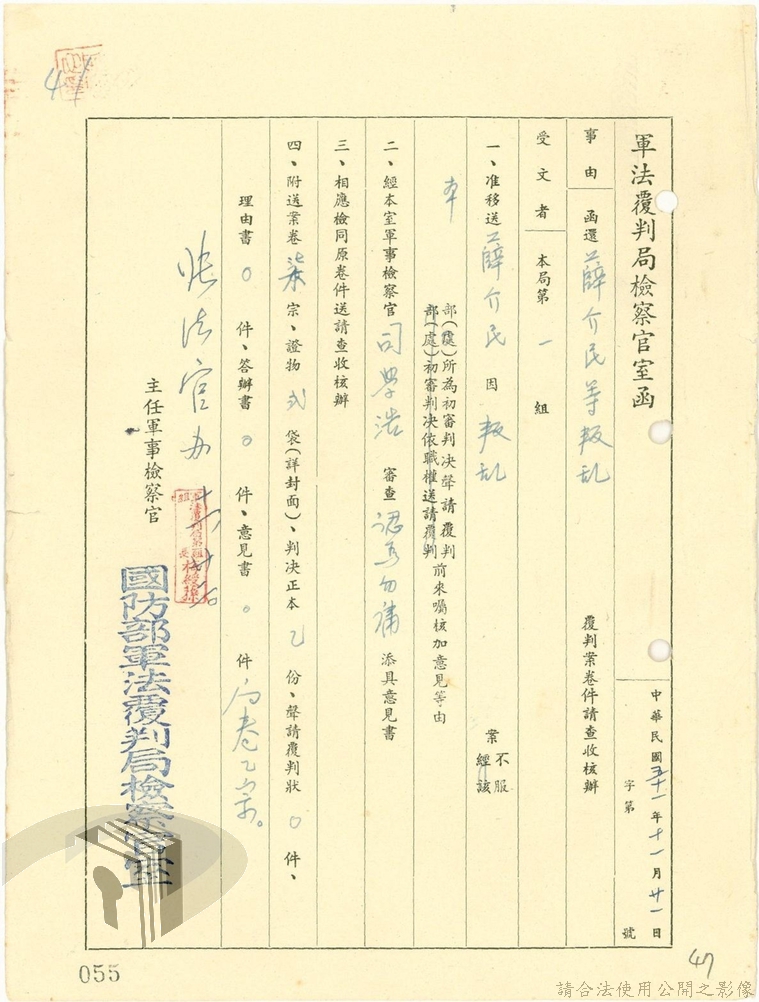 軍法覆判局檢察官室函
中華民國五十一年十一月廿一日
字第 號
事由 函還薛介民等叛乱 覆判案卷件請查收核辦
受文者 本局第一組
一、准移送薛介民因叛乱 案 不服 經該
本 部(處)所為初審判决聲請覆判 部(處)初審判决依職權送請覆判 前來囑核加意見等由
二、經本室軍事檢察官司學浩審查認為勿庸添具意見書
三、相應檢同原卷件送請查收核辦
四、附送案卷柒宗、證物弍袋(詳封面)、判决正本乙份、聲請覆判狀0件、
理由書0件、答辯書0件、意見書0件
張法官办
主任軍事檢察官
國防部軍法覆判局檢察官室
055
47
請合法使用公開之影像